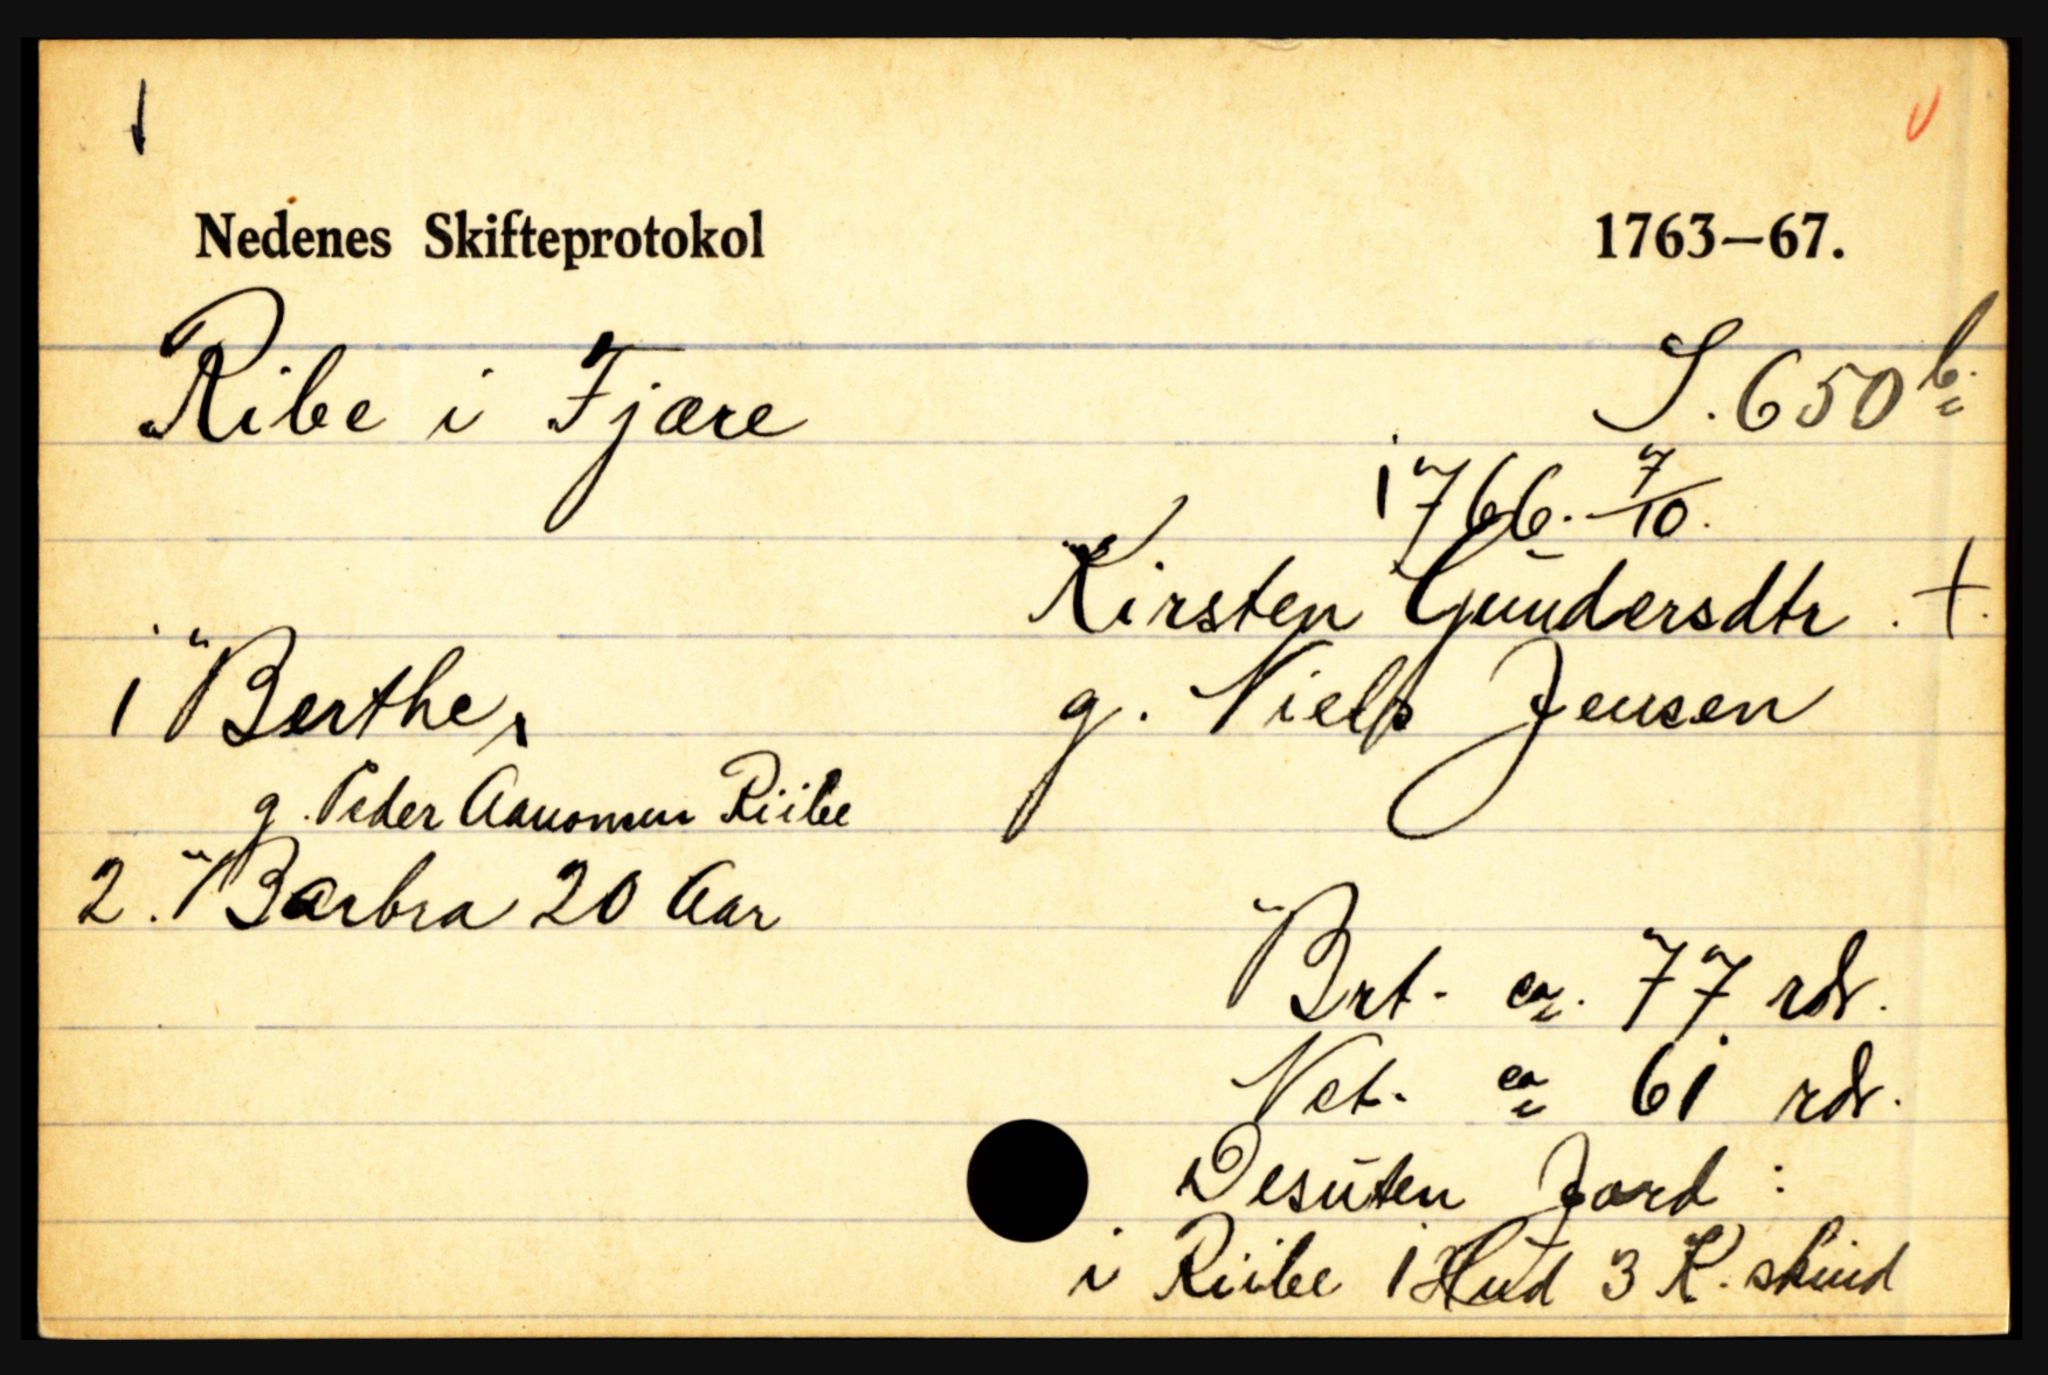 Nedenes Skifteprotokol 1763—67.
Ribe i Fjære S. 650 b.
1766. 7/10.
Kirsten Gundersdtr. †.
g. Niels Jensen
1 Berthe,
g. Peder Aanonsen Riibe
2. Barbra 20 Aar
Brt. ca. 77 rdr.
Net. ca 61 rdr.
Desuten Jord :
i Riibe 1 Hud 3 K. skind